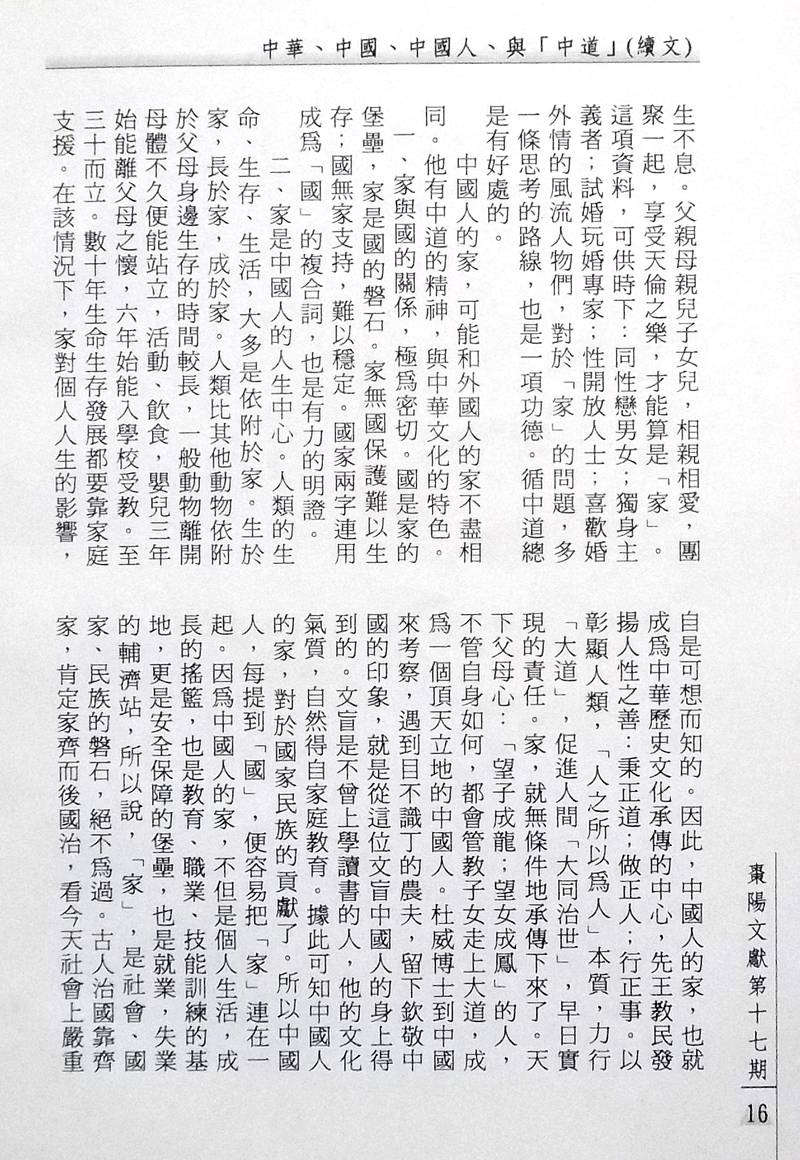 中華、中國、中國人、與「中道」(續文)
生不息。父親母親兒子女兒，相親相愛，團
聚一起，享受天倫之樂，才能算是「家」。
這項資料，可供時下：同性戀男女；獨身主
義者；試婚玩婚專家；性開放人士；喜歡婚
外情的風流人物們，對於「家」的問題，多
一條思考的路線，也是一項功德。循中道總
是有好處的。
中國人的家，可能和外國人的家不盡相
同。他有中道的精神，與中華文化的特色。
一、家與國的關係，極為密切。國是家的
堡壘，家是國的磐石。家無國保護難以生
存；國無家支持，難以穩定。國家兩字連用
成為「國」的複合詞，也是有力的明證。
二、家是中國人的人生中心。人類的生
命、生存、生活，大多是依附於家。生於
家，長於家，成於家。人類比其他動物依附
於父母身邊生存的時間較長，一般動物離開
母體不久便能站立，活動、飲食，嬰兒三年
始能離父母之懷，六年始能入學校受教。至
三十而立。數十年生命生存發展都要靠家庭
支援。在該情況下，家對個人人生的影響，
自是可想而知的。因此，中國人的家，也就
成為中華歷史文化承傳的中心，先王教民發
揚人性之善：秉正道；做正人；行正事。以
彰顯人類，「人之所以為人」本質，力行
「大道」，促進人間「大同治世」，早日實
現的責任。家，就無條件地承傳下來了。天
下父母心：「望子成龍；望女成鳳」的人，
不管自身如何，都會管教子女走上大道，成
為一個頂天立地的中國人。杜威博士到中國
來考察，遇到目不識丁的農夫，留下欽敬中
國的印象，就是從這位文盲中國人的身上得
到的。文盲是不曾上學讀書的人，他的文化
氣質，自然得自家庭教育。據此可知中國人
的家，對於國家民族的貢獻了。所以中國
人，每提到「國」，便容易把「家」連在一
起。因為中國人的家，不但是個人生活，成
長的搖籃，也是教育、職業、技能訓練的基
地，更是安全保障的堡壘，也是就業，失業
的輔濟站，所以說，「家」，是社會、國
家、民族的磐石，絕不為過。古人治國靠齊
家，肯定家齊而後國治，看今天社會上嚴重
棗陽文獻第十七期
16